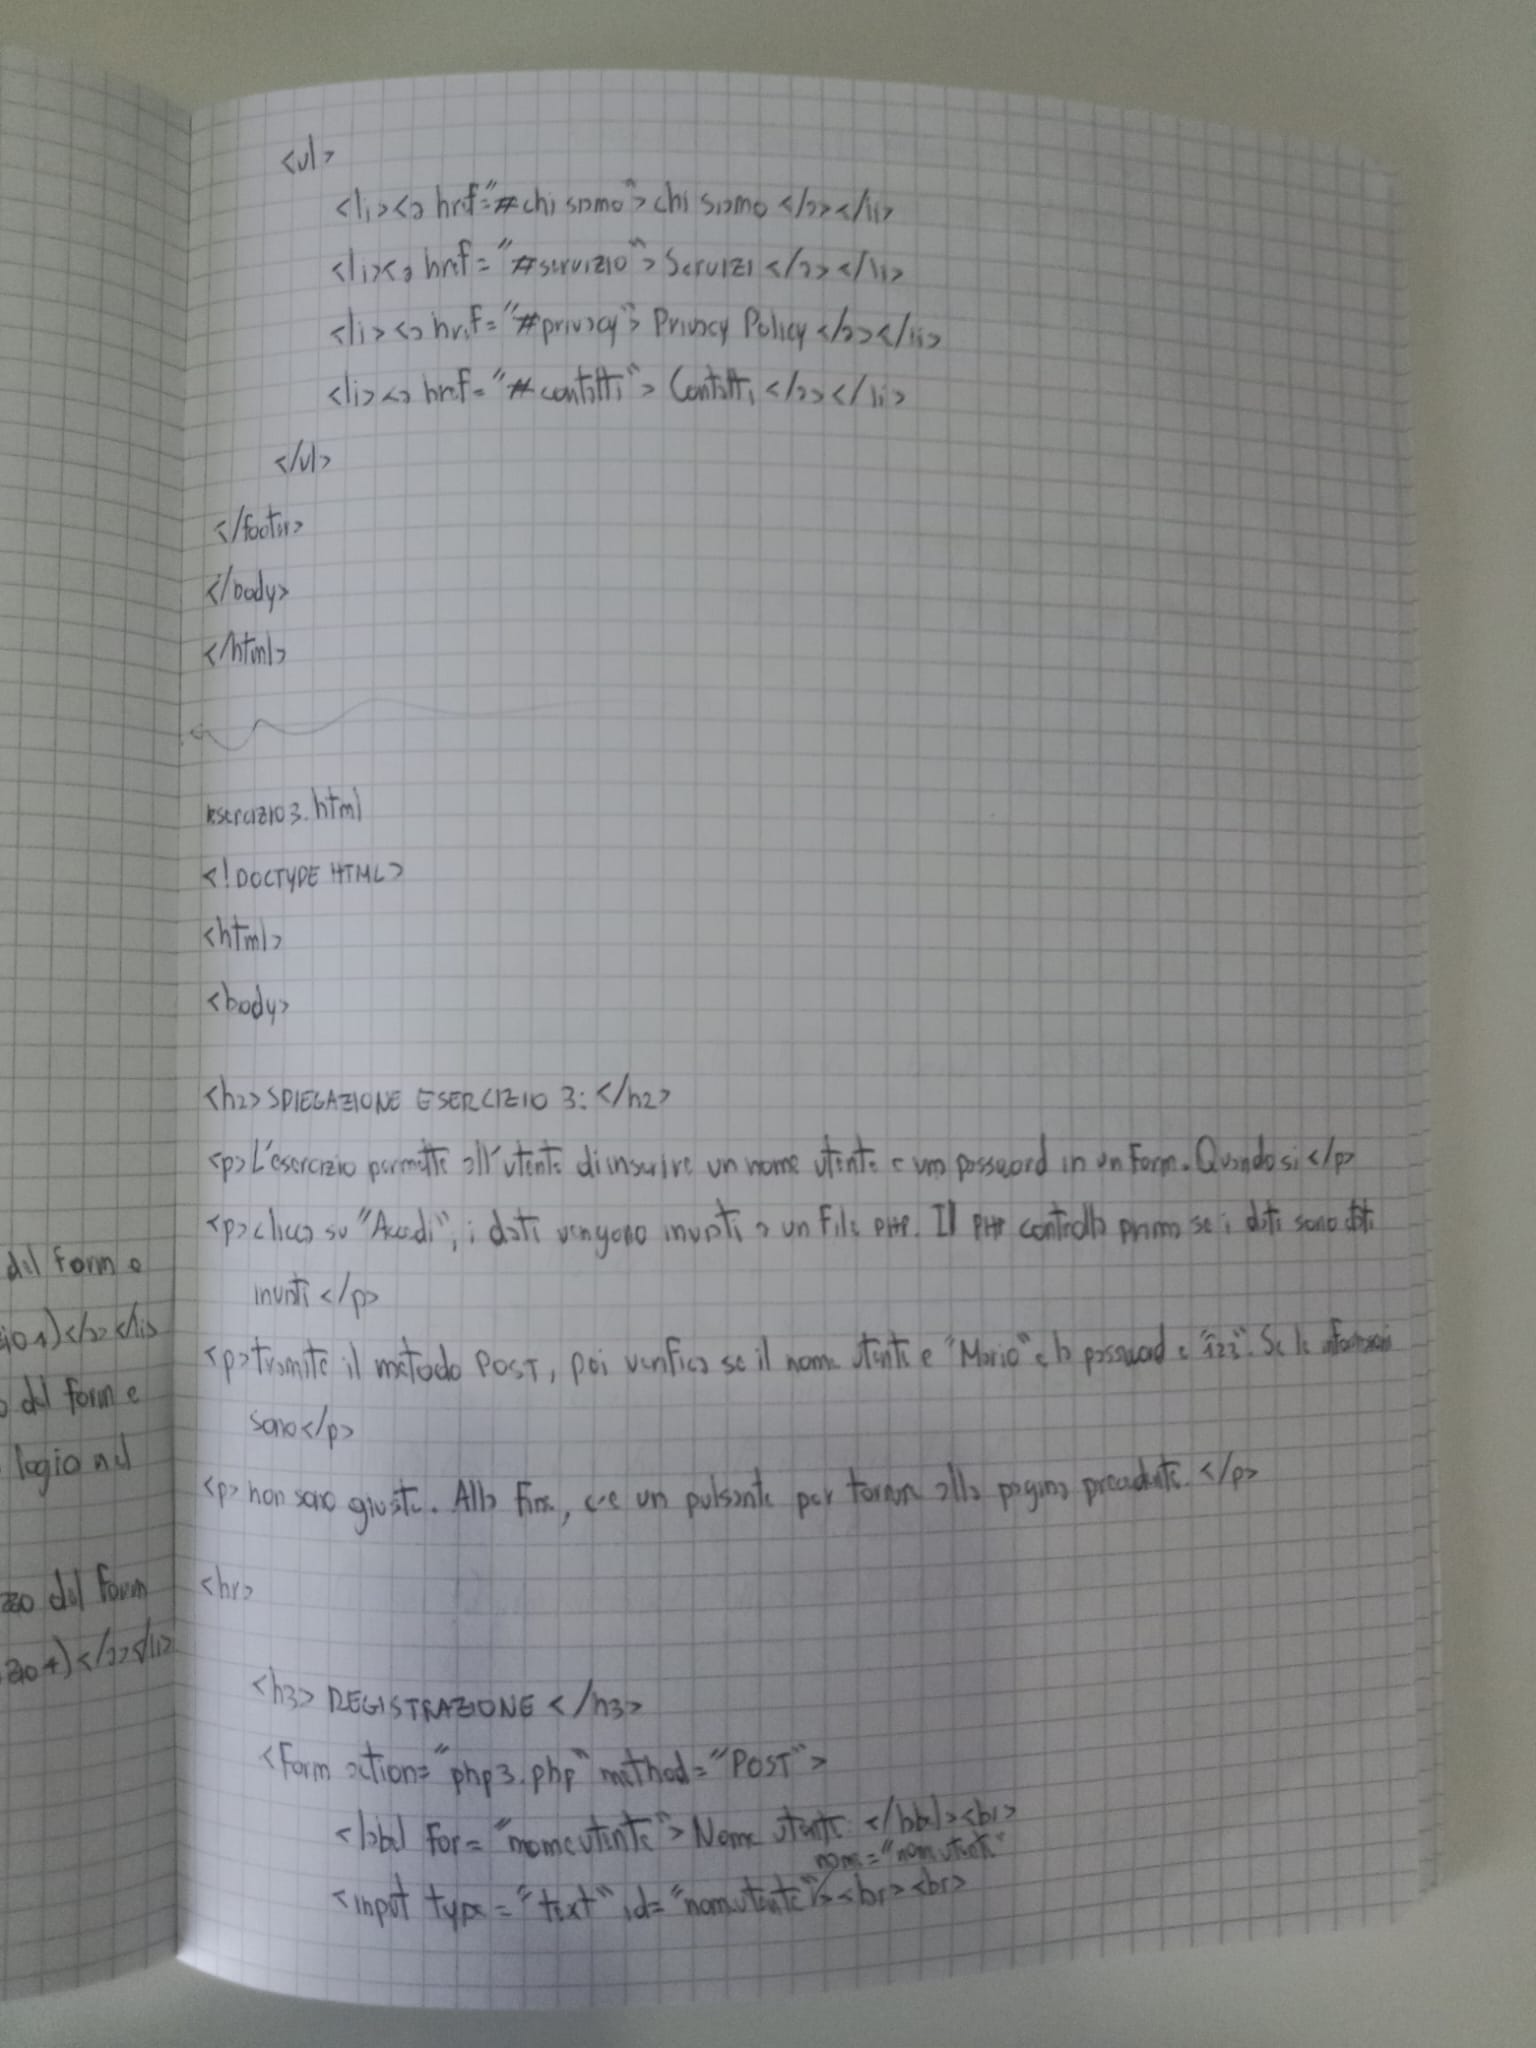 <ul>
<li><a href="#chi siamo">chi siamo</a></li>
<li><a href="#servizio">Servizi</a></li>
<li><a href="#privacy">Privacy Policy</a></li>
<li><a href="#contatti">Contatti</a></li>
</ul>
</footer>
</body>
</html>
esercizio3.html
<!DOCTYPE HTML>
<html>
<body>
<h2>SPIEGAZIONE ESERCIZIO 3:</h2>
<p>L'esercizio permette all'utente di inserire un nome utente e una password in un form. Quando si</p>
<p>clicca su "Accedi", i dati vengono inviati a un file PHP. Il PHP controlla prima se i dati sono stati
inviati</p>
<p>tramite il metodo POST, poi verifica se il nome utente e "Mario" e la password e "123". Se le informazioni
sono</p>
<p>non sono giuste. Alla fine, c'e un pulsante per tornare alla pagina precedente.</p>
<hr>
<h3>REGISTRAZIONE</h3>
<form action="php3.php" method="POST">
<label for="nomeutente">Nome utente:</label><br>
name="nomeutente"
<input type="text" id="nomeutente"><br><br>
del form e
zio1)</a></li>
o del form e
logio nel
zzo del form
zio4)</a></li>